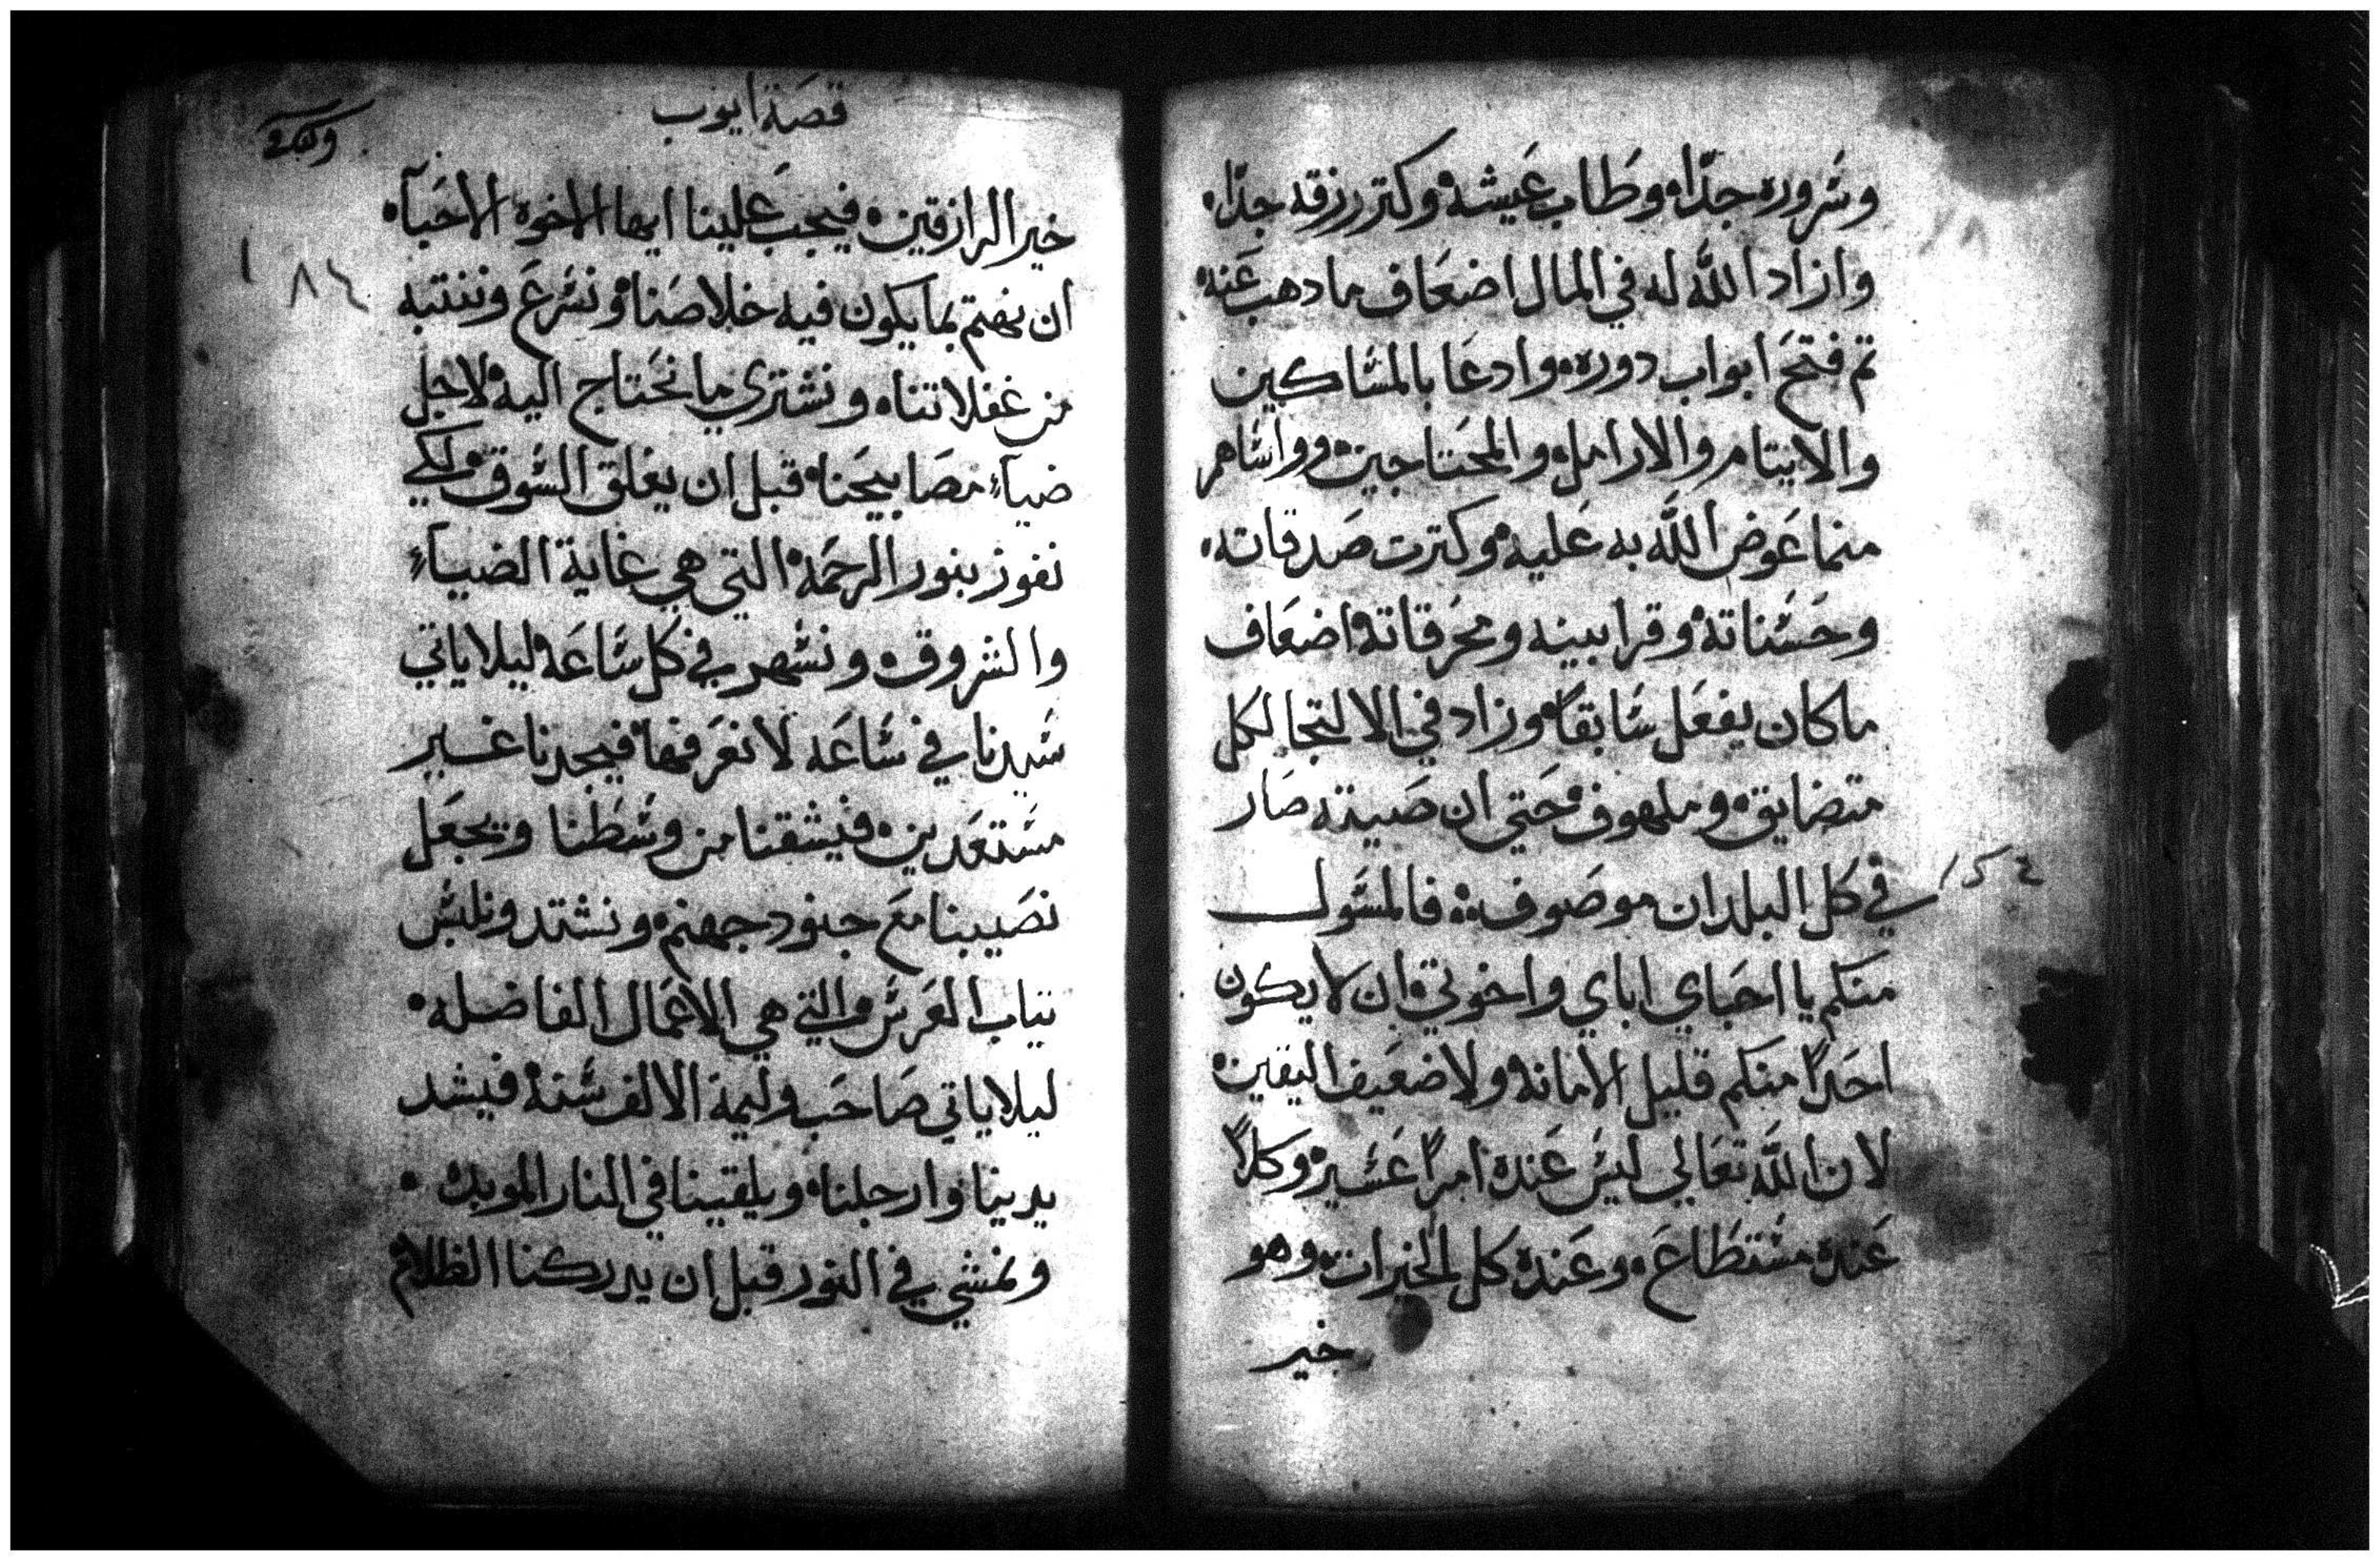 وسروره جدًا، وطاب عيشه، وكتر رزقه جدًا،
وازاد الله له في المال اضعاف ما دهب عنه
تم فتح ابواب دوره، وادعا بالمساكين
والايتام والارامل، والمحتاجين، وواساهم
منما عوض الله به عليه، وكترت صدقاته،
وحسناته، وقرابينه ومحرقاته، اضعاف
ماكان يفعل سابقًا، وزاد في الالتجا لكل
متضايق، وملهوف، حتي ان صيته صار
في كل البلدان موصوف، فالمسول
منكم يا احباي اباي واخوتي، ان لا يكون
احدًا منكم قليل الامانه ولا ضعيف اليقين،
لان الله تعالي ليس عنده امرًا عسير، وكلاً
عنده مستطاع، وعنده كل الخيرات، وهو
خير
قصة ايوب
خير الرازقين، فيجب علينا ايها الاخوه الاحبآ،
ان نهتم بما يكون فيه خلاصنا، ونسرع وننتبه
من غفلاتنا، ونشتري ما نحتاج اليه، لاجل
ضيآء مصابيحنا، قبل ان يغلق السوق، ولكي
نفوز بنور الرحمه، التي هي غاية الضيآء
والشروق، ونسهر في كل ساعه، ليلا ياتي
سيدنا في ساعه لا نعرفها، فيجدنا غير
مستعدين، فيشقنا من وسطنا ويجعل
نصيبنا مع جنود جهنم، ونشتد ونلبس
تياب العرس، والتي هي الاعمال الفاضله،
ليلا ياتي صاحب وليمة الالف سنة، فيشد
يدينا وارجلنا، ويلقينا في النار الموبده،
ونمشي في النور قبل ان يدركنا الظلام
١٨٤